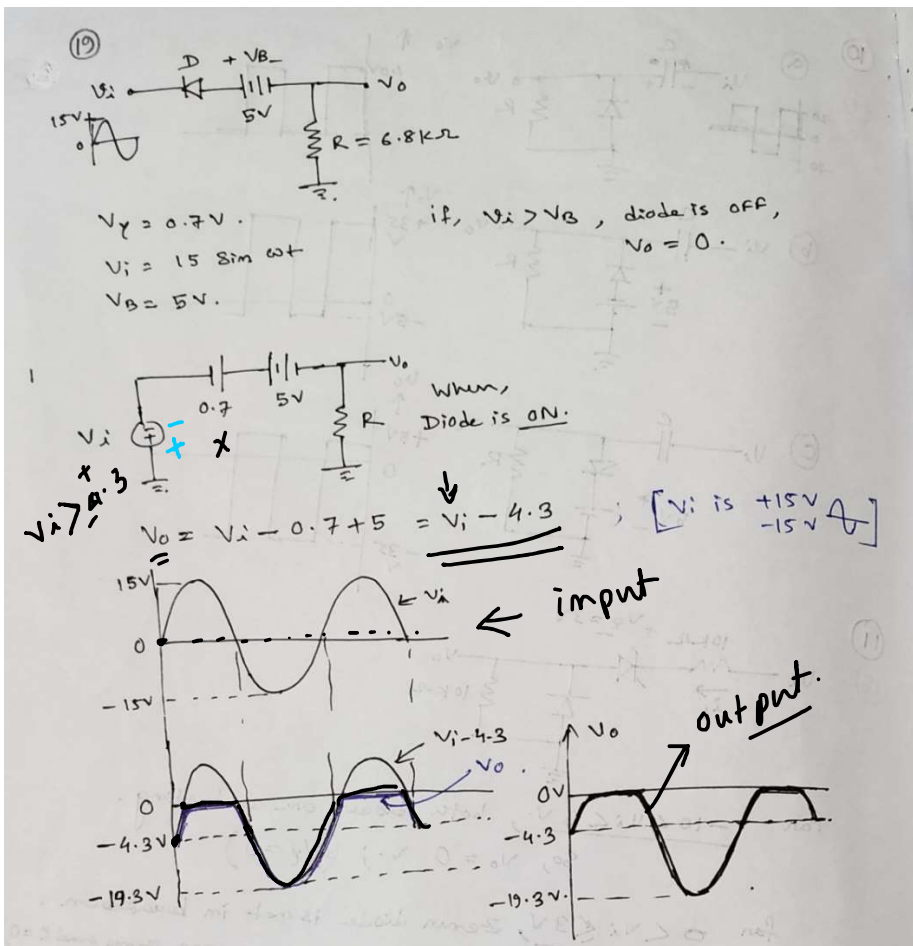 19
D + VB -
Vi Vo
5V
15V
0
R = 6.8KΩ
Vγ = 0.7V.
Vi = 15 Sin ωt
VB = 5V.
if, Vi > VB, diode is OFF,
Vo = 0.
Vo
0.7 5V R
Vi
- +
x
When,
Diode is ON.
Vi > 4.3
Vo = Vi - 0.7 + 5 = Vi - 4.3 ; [Vi is +15V
-15V]
15V
Vi
0
-15V
← input
Vi-4.3
Vo.
0
-4.3V
-19.3V
Vo
output.
0V
-4.3
-19.3V.